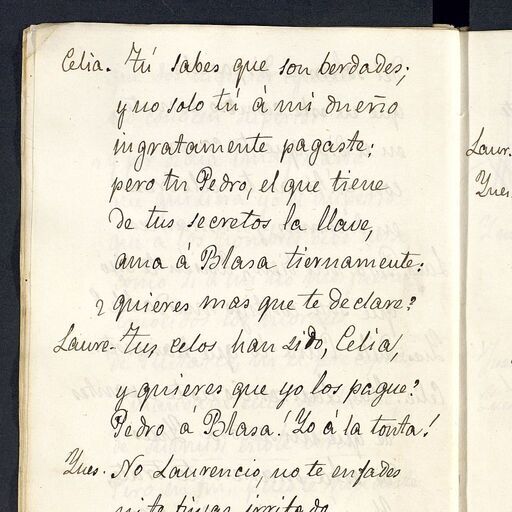 Celia. Tú sabes que son berdades;
y no solo tú á mi dueño
ingratamente pagaste;
pero tu Pedro, el que tiene
de tus secretos la llave,
ama á Blasa tiernamente:
¿ quieres mas que te declare?
Laure- Tus celos han sido, Celia,
y quieres que yo los pague?
Pedro á Blasa! Yo á la tonta!
Ynes. No Laurencio, no te enfades
ni te irritado
Laur.
Ynes.